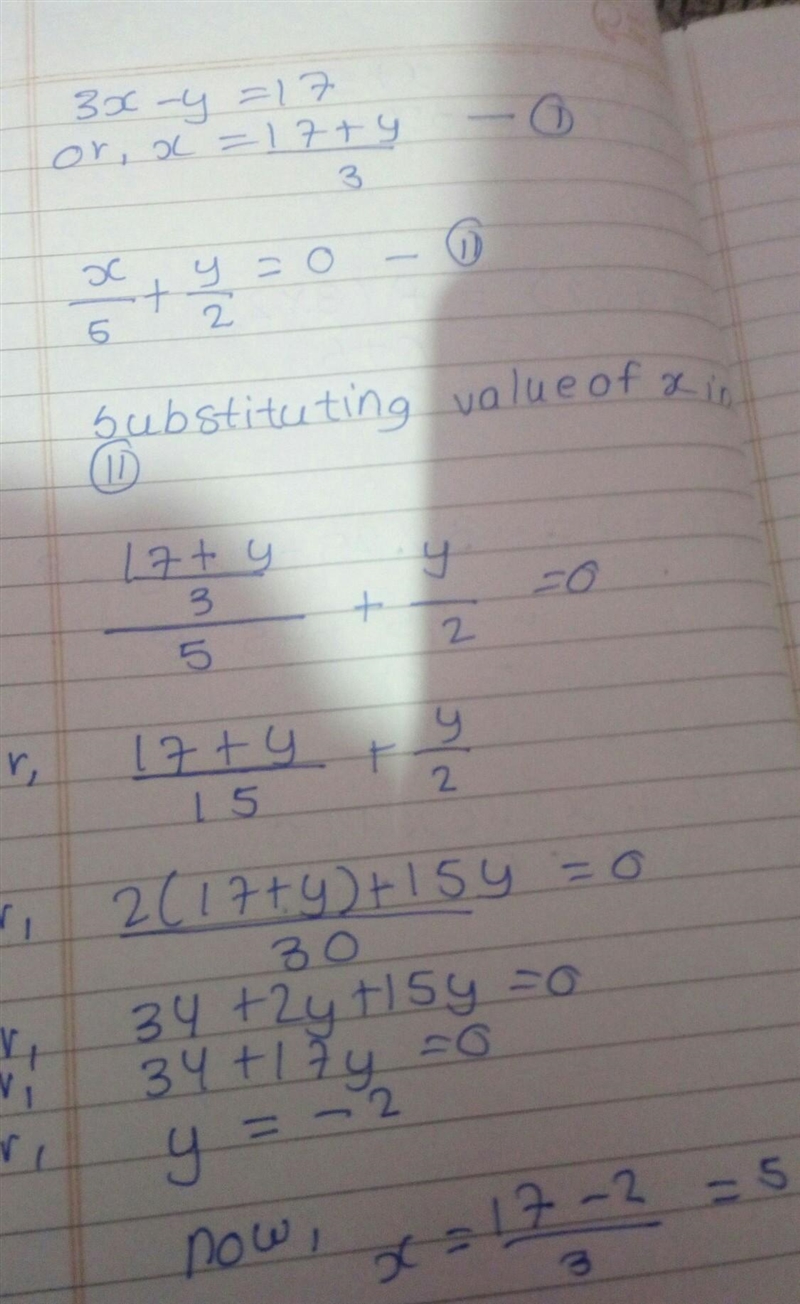 3x - y = 17
or, x = 17 + y / 3 - (I)
x/5 + y/2 = 0 - (II)
substituting value of x in
(II)
17 + y / 3 / 5 + y / 2 = 0
r, 17 + y / 15 + y / 2
r, 2(17+y)+15y / 30 = 0
r, 34 + 2y + 15y = 0
r, 34 + 17y = 0
r, y = -2
now, x = 17 - 2 / 3 = 5